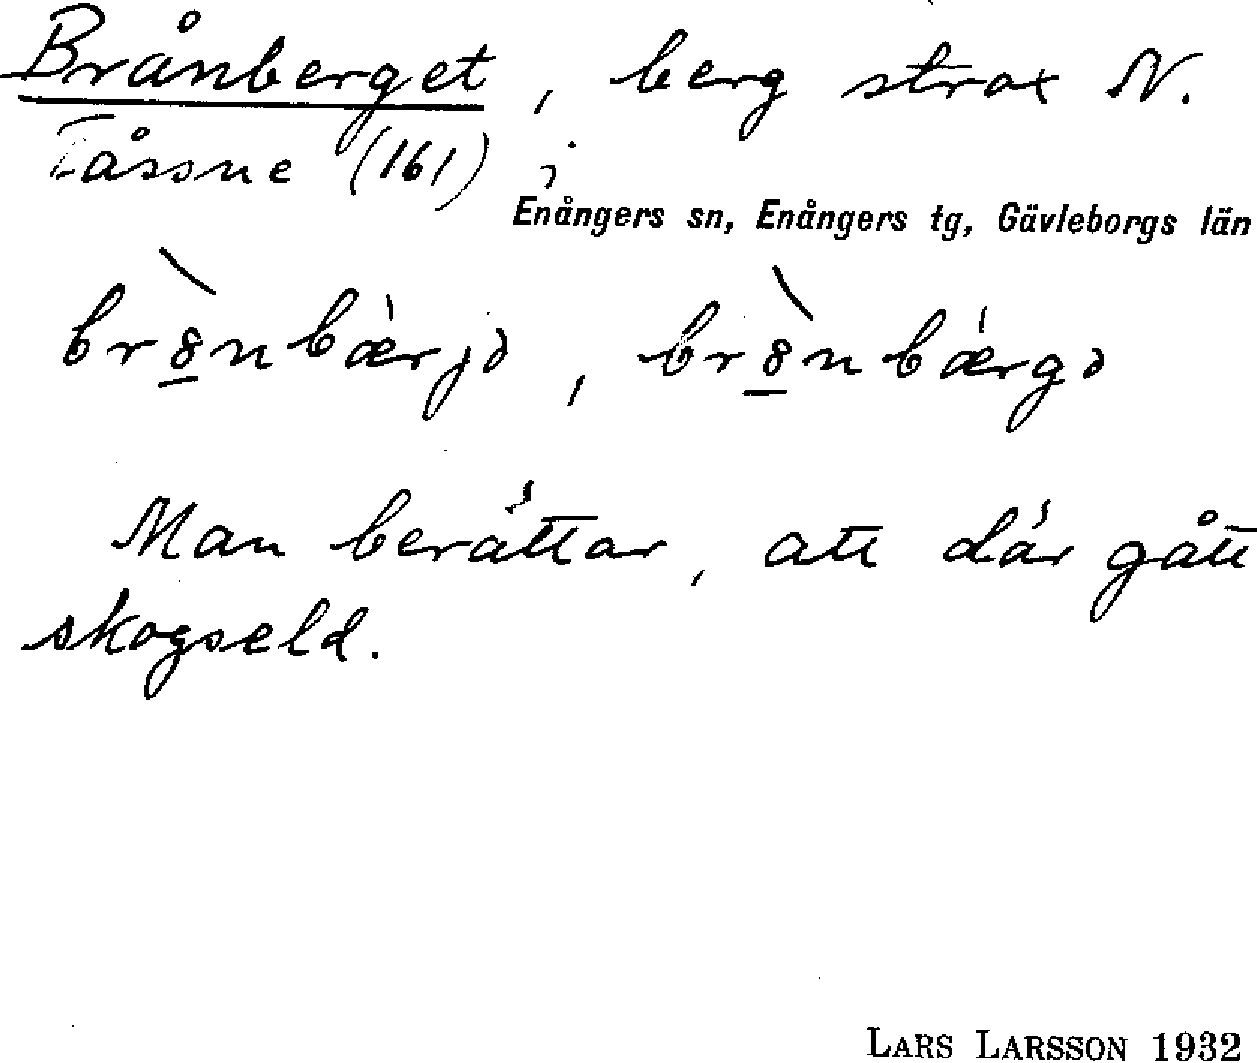 Brånberget, berg strax N.
Fåssne (161) i
Enångers sn, Enångers tg, Gävleborgs län
Man berättar, att där gått
skogseld.
LARS LARSSON 1932